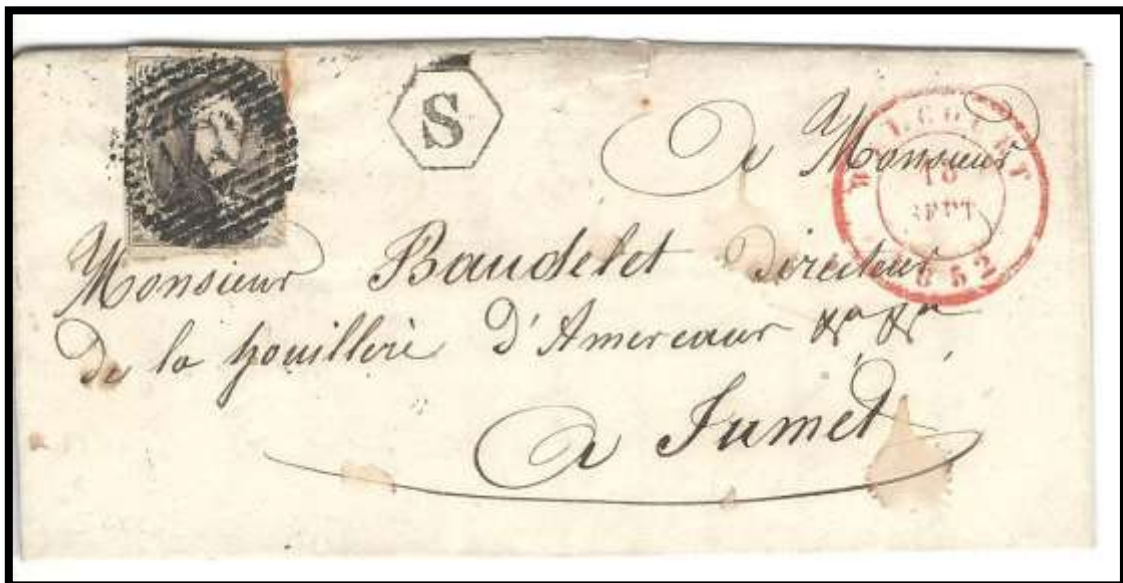 S
a Monsieur
WALCOURT
10
SEPT
1852
Monsieur Baudelet Directeur
De la houillère D'Amercœur &a &a
a Jumet